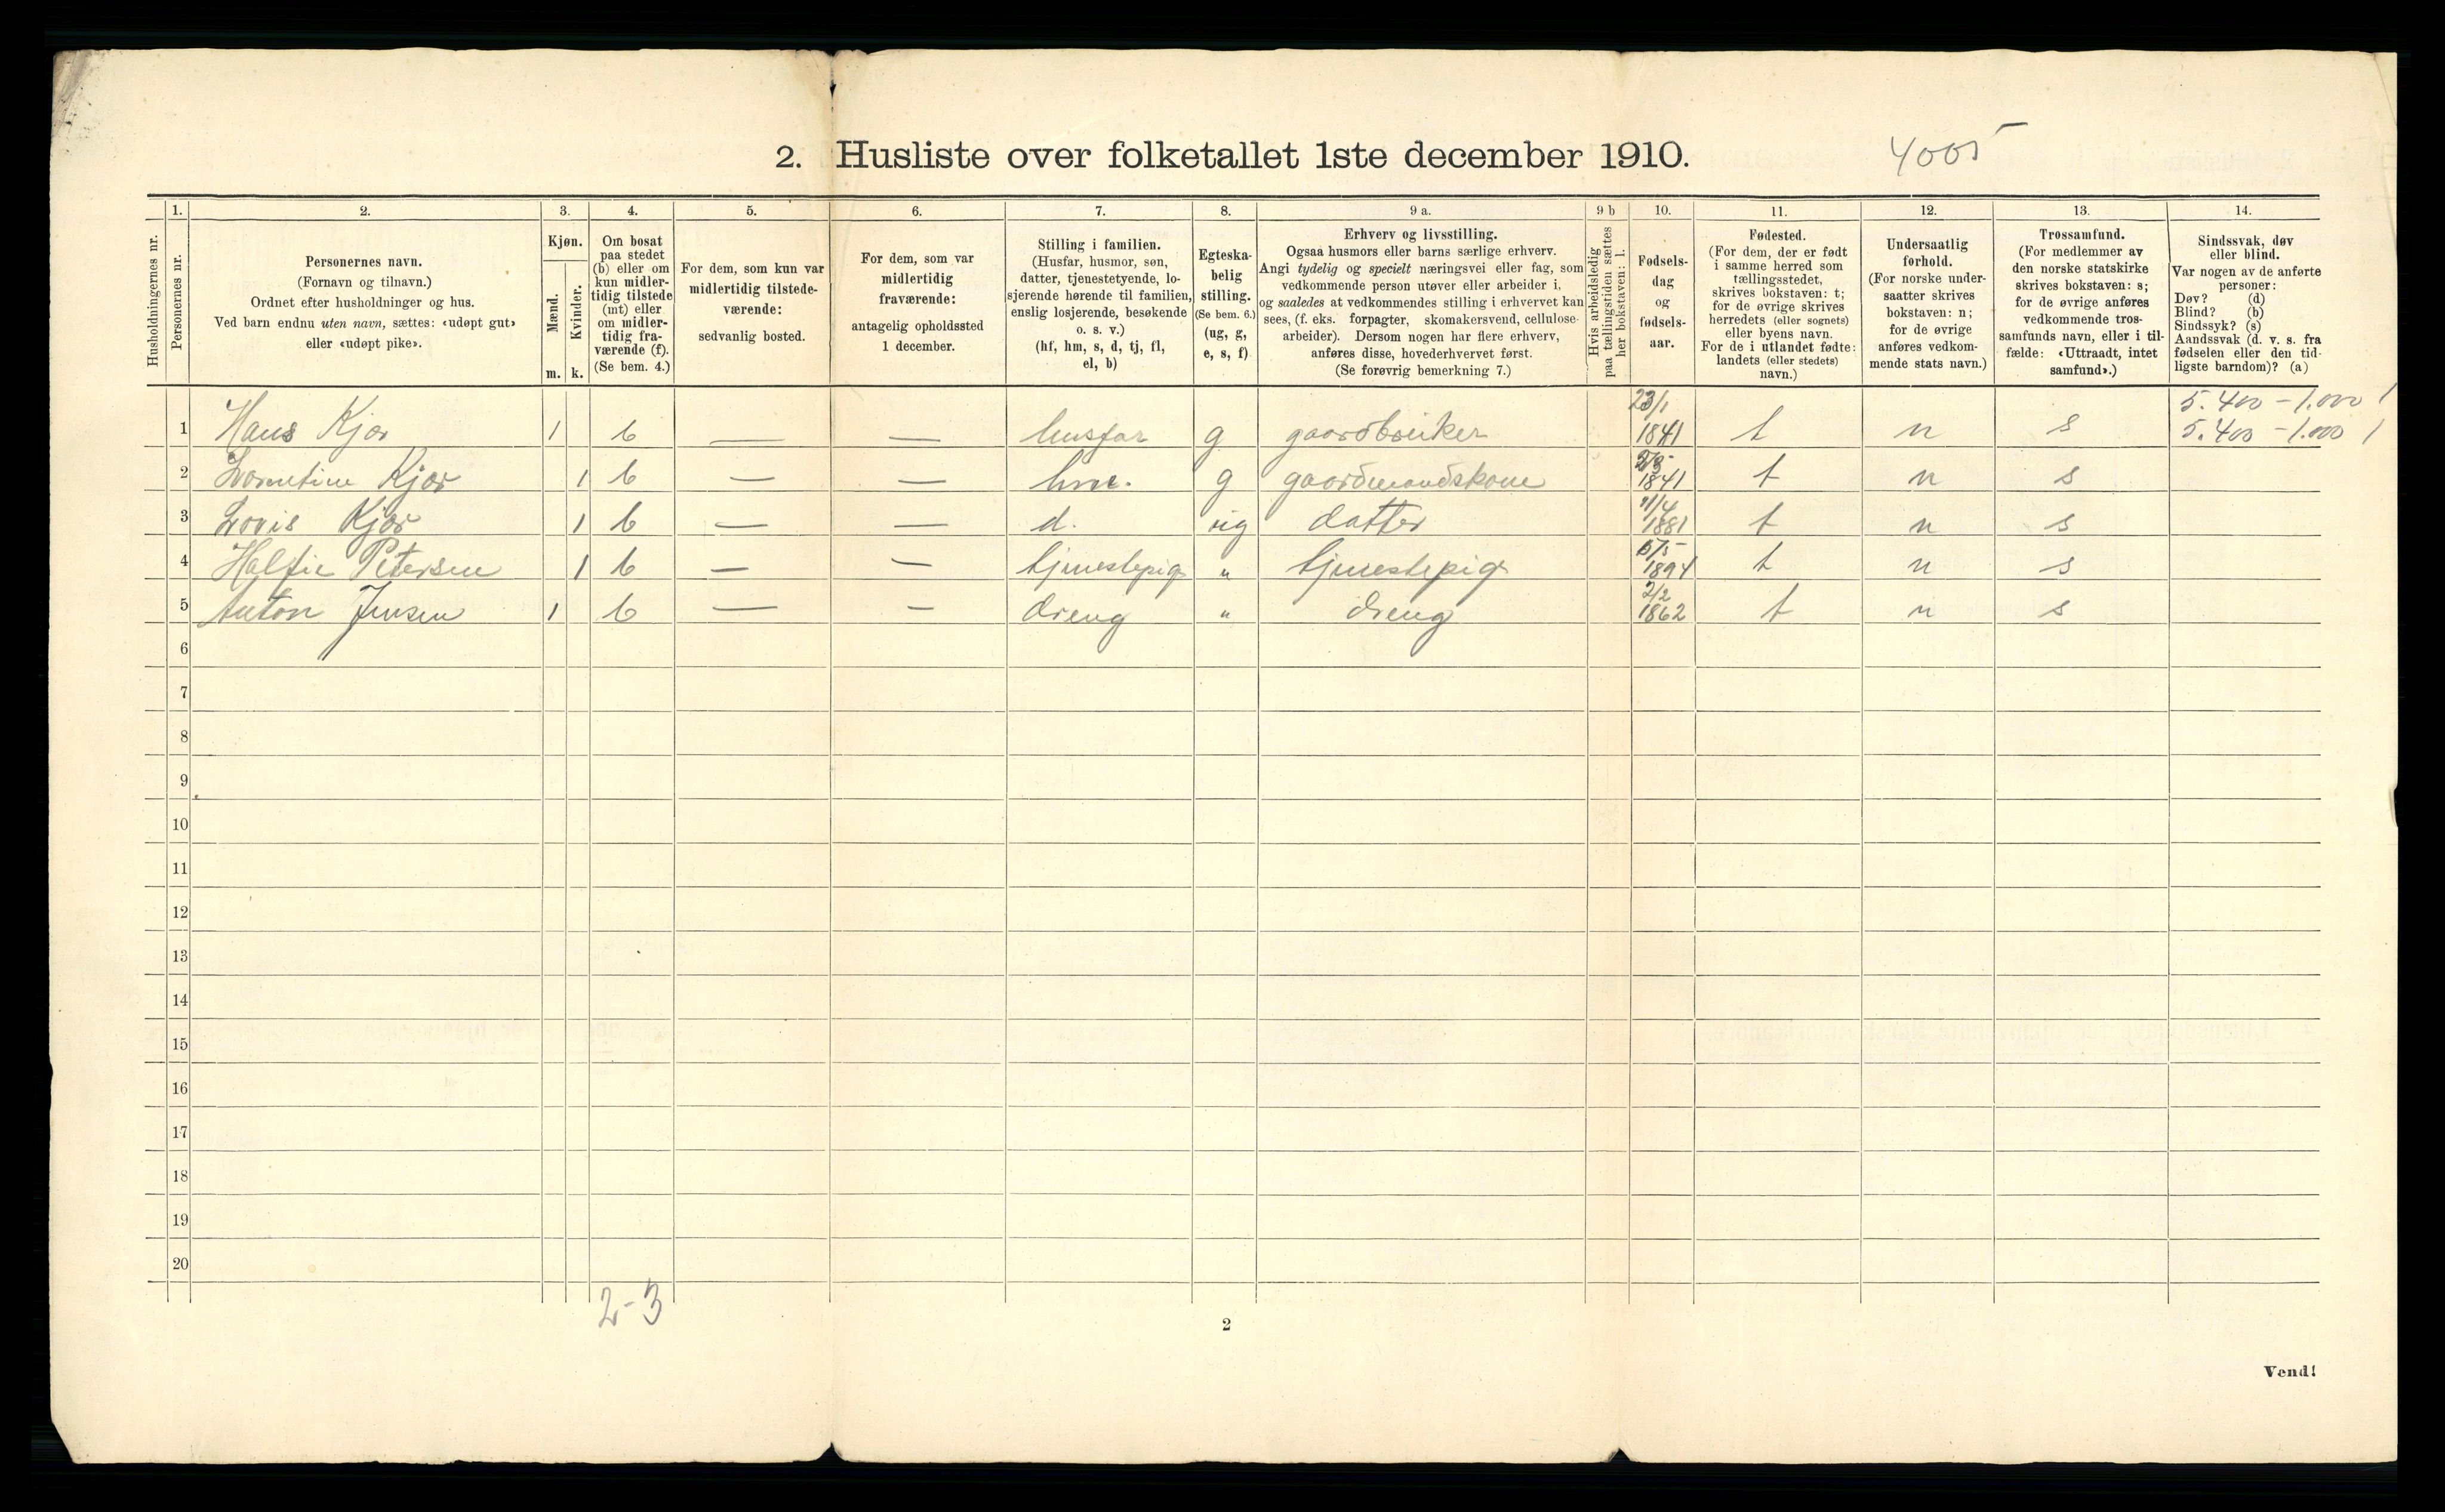 2. Husliste over folketallet 1ste december 1910.
4005
Husholdningernes nr.
1.
Personernes nr.
2.
Personernes navn.
(Fornavn og tilnavn.)
Ordnet efter husholdninger og hus.
Ved barn endnu uten navn, sættes: «udøpt gut»
eller «udøpt pike».
3.
Kjøn.
Mænd.
Kvinder.
m. k.
4.
Om bosat
paa stedet
(b) eller om
kun midler-
tidig tilstede
(mt) eller
om midler-
tidig fra-
værende (f).
(Se bem. 4.)
5.
For dem, som kun var
midlertidig tilstede-
værende:
sedvanlig bosted.
6.
For dem, som var
midlertidig
fraværende:
antagelig opholdssted
1 december.
7.
Stilling i familien.
(Husfar, husmor, søn,
datter, tjenestetyende, lo-
sjerende hørende til familien,
enslig losjerende, besøkende
o. s. v.)
(hf, hm, s, d, tj, fl,
el, b)
8.
Egteska-
belig
stilling.
(Se bem. 6.)
(ug, g,
e, s, f)
9 a.
Erhverv og livsstilling.
Ogsaa husmors eller barns særlige erhverv.
Angi tydelig og specielt næringsvei eller fag, som
vedkommende person utøver eller arbeider i,
og saaledes at vedkommendes stilling i erhvervet kan
sees, (f. eks. forpagter, skomakersvend, cellulose-
arbeider). Dersom nogen har flere erhverv,
anføres disse, hovederhvervet først.
(Se forøvrig bemerkning 7.)
9 b
Hvis arbeidsledig
paa tællingstiden sættes
her bokstaven: l.
10.
Fødsels-
dag
og
fødsels-
aar.
11.
Fødested.
(For dem, der er født
i samme herred som
tællingsstedet,
skrives bokstaven: t;
for de øvrige skrives
herredets (eller sognets)
eller byens navn.
For de i utlandet fødte:
landets (eller stedets)
navn.)
12.
Undersaatlig
forhold.
(For norske under-
saatter skrives
bokstaven: n;
for de øvrige
anføres vedkom-
mende stats navn.)
13.
Trossamfund.
(For medlemmer av
den norske statskirke
skrives bokstaven: s;
for de øvrige anføres
vedkommende tros-
samfunds navn, eller i til-
fælde: «Uttraadt, intet
samfund».)
14.
Sindssvak, døv
eller blind.
Var nogen av de anførte
personer:
Døv? (d)
Blind? (b)
Sindssyk? (s)
Aandssvak (d. v. s. fra
fødselen eller den tid-
ligste barndom)? (a)
5.400 – 1.000 1
1 Hans Kjær 1 b — — husfar g gaardbruker 23/1 1841 t n s 5.400 – 1.000 1
2 Kjær 1 b — — hm. g gaardmandskone 1841 t n s
3 Lovis Kjær 1 b — — d. ug datter 11/4 1881 t n s
4 Petersen 1 b — — tjenestepige " tjenestepige 1894 t n s
5 Anton Jensen 1 b — — dreng " dreng 2/2 1862 t n s
6
7
8
9
10
11
12
13
14
15
16
17
18
19
20
2-3
2
Vend!